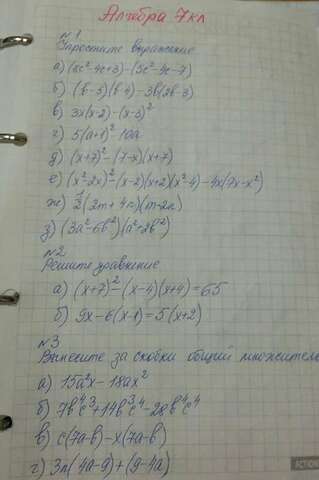 Алгебра 7 кл
№1
Упростите выражение
а) (6c²-4c+3)-(5c²-4c-7)
б) (b-3)(b-4)-3b(2b-3)
в) 3x(x-2)-(x-3)²
г) 5(a+1)²-10a
д) (x+7)²-(7-x)(x+7)
е) (x²-2x)²-(x-2)(x+2)(x²-4)-4x(7x-x²)
ж) 1/2(2m+4n)(m-2n)
з) (3a²-6b²)(a²+2b²)
№2
Решите уравнение
а) (x+7)²-(x-4)(x+4)=65
б) 9x-6(x-1)=5(x+2)
№3
Вынесите за скобки общий множитель
а) 15a²x-18ax²
б) 7b⁴c³+14b³c⁴-28b⁴c⁴
в) c(7a-b)-x(7a-b)
г) 3n(4a-9)+(9-4a)